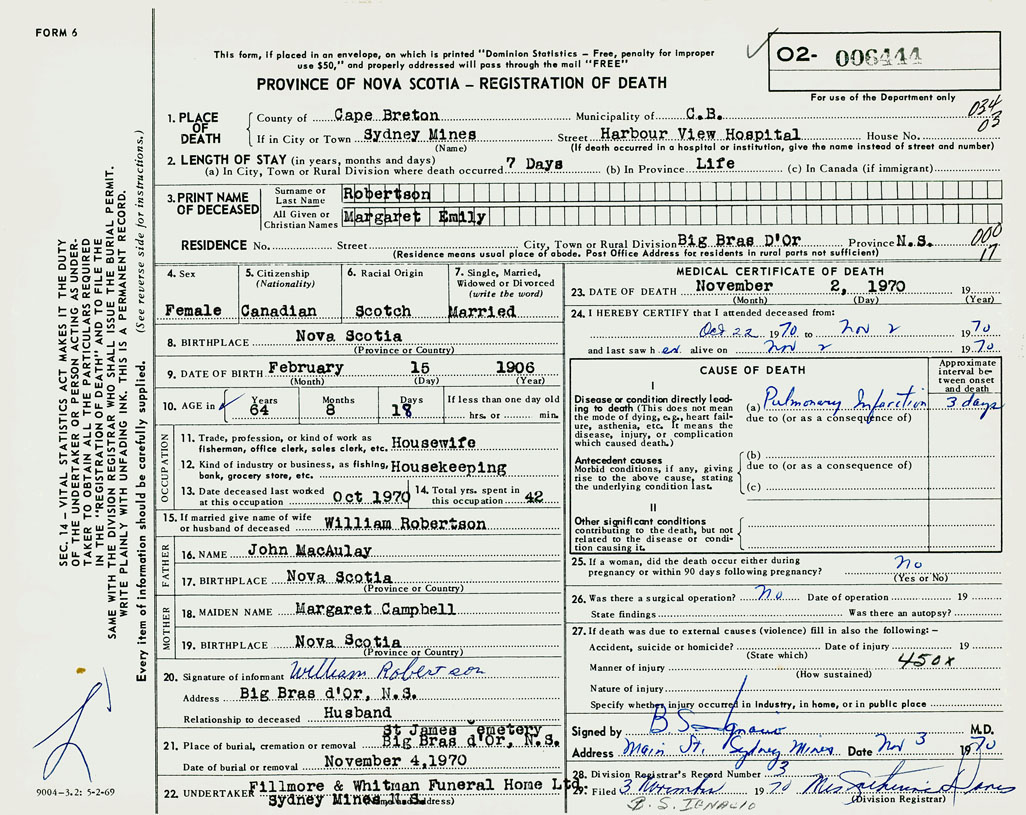 FORM 6
This form, if placed in an envelope, on which is printed "Dominion Statistics – Free, penalty for improper
use $50," and properly addressed will pass through the mail "FREE"
PROVINCE OF NOVA SCOTIA – REGISTRATION OF DEATH
O2- 006444
For use of the Department only
034
03
1. PLACE OF DEATH
County of Cape Breton Municipality of C.B.
If in City or Town Sydney Mines Street Harbour View Hospital House No.
(Name) (If death occurred in a hospital or institution, give the name instead of street and number)
2. LENGTH OF STAY (in years, months and days)
(a) In City, Town or Rural Division where death occurred 7 Days (b) In Province Life (c) In Canada (if immigrant)
3. PRINT NAME OF DECEASED
Surname or Last Name Robertson
All Given or Christian Names Margaret Emily
RESIDENCE No. Street City, Town or Rural Division Big Bras D'Or Province N.S.
000
17
(Residence means usual place of abode. Post Office Address for residents in rural parts not sufficient)
4. Sex
Female
5. Citizenship
(Nationality)
Canadian
6. Racial Origin
Scotch
7. Single, Married,
Widowed or Divorced
(write the word)
Married
8. BIRTHPLACE Nova Scotia
(Province or Country)
9. DATE OF BIRTH February 15 1906
(Month) (Day) (Year)
10. AGE in Years Months Days If less than one day old
64 8 18 hrs. or min.
OCCUPATION
11. Trade, profession, or kind of work as
fisherman, office clerk, sales clerk, etc. Housewife
12. Kind of industry or business, as fishing,
bank, grocery store, etc. Housekeeping
13. Date deceased last worked
at this occupation Oct 1970
14. Total yrs. spent in
this occupation 42
15. If married give name of wife
or husband of deceased William Robertson
FATHER
16. NAME John MacAulay
17. BIRTHPLACE Nova Scotia
(Province or Country)
MOTHER
18. MAIDEN NAME Margaret Campbell
19. BIRTHPLACE Nova Scotia
(Province or Country)
20. Signature of informant William Robertson
Address Big Bras d'Or, N.S.
Relationship to deceased Husband
21. Place of burial, cremation or removal St James Cemetery
Big Bras d'Or, N.S.
Date of burial or removal November 4,1970
22. UNDERTAKER Fillmore & Whitman Funeral Home Ltd.
Sydney Mines N.S.
MEDICAL CERTIFICATE OF DEATH
23. DATE OF DEATH November 2, 1970 19
(Month) (Day) (Year)
24. I HEREBY CERTIFY that I attended deceased from:
Oct 22 1970 to Nov 2 1970
and last saw h er alive on Nov 2 1970
CAUSE OF DEATH
Approximate
interval be-
tween onset
and death
I
Disease or condition directly lead-
ing to death (This does not mean
the mode of dying, e.g., heart fail-
ure, asthenia, etc. It means the
disease, injury, or complication
which caused death.)
(a) Pulmonary Infarction 3 days
due to (or as a consequence of)
Antecedent causes
Morbid conditions, if any, giving
rise to the above cause, stating
the underlying condition last.
(b)
due to (or as a consequence of)
(c)
II
Other significant conditions
contributing to the death, but not
related to the disease or condi-
tion causing it.
25. If a woman, did the death occur either during
pregnancy or within 90 days following pregnancy? No
(Yes or No)
26. Was there a surgical operation? No Date of operation 19
State findings Was there an autopsy?
27. If death was due to external causes (violence) fill in also the following: –
Accident, suicide or homicide? Date of injury 19
(State which) 450x
Manner of injury
(How sustained)
Nature of injury
Specify whether injury occurred in industry, in home, or in public place
Signed by B S Ignacio M.D.
Address Main St. Sydney Mines Date Nov 3 1970
28. Division Registrar's Record Number 3
29. Filed 3 November 1970 Mrs
(Division Registrar)
B.S. IGNACIO
SEC. 14 – VITAL STATISTICS ACT MAKES IT THE DUTY
OF THE UNDERTAKER OR PERSON ACTING AS UNDER-
TAKER TO OBTAIN ALL THE PARTICULARS REQUIRED
IN THE "REGISTRATION OF DEATH" AND TO FILE THE
SAME WITH THE DIVISION REGISTRAR WHO SHALL ISSUE THE BURIAL PERMIT.
WRITE PLAINLY WITH UNFADING INK. THIS IS A PERMANENT RECORD.
Every item of information should be carefully supplied. (See reverse side for instructions.)
9004–3.2: 5-2-69